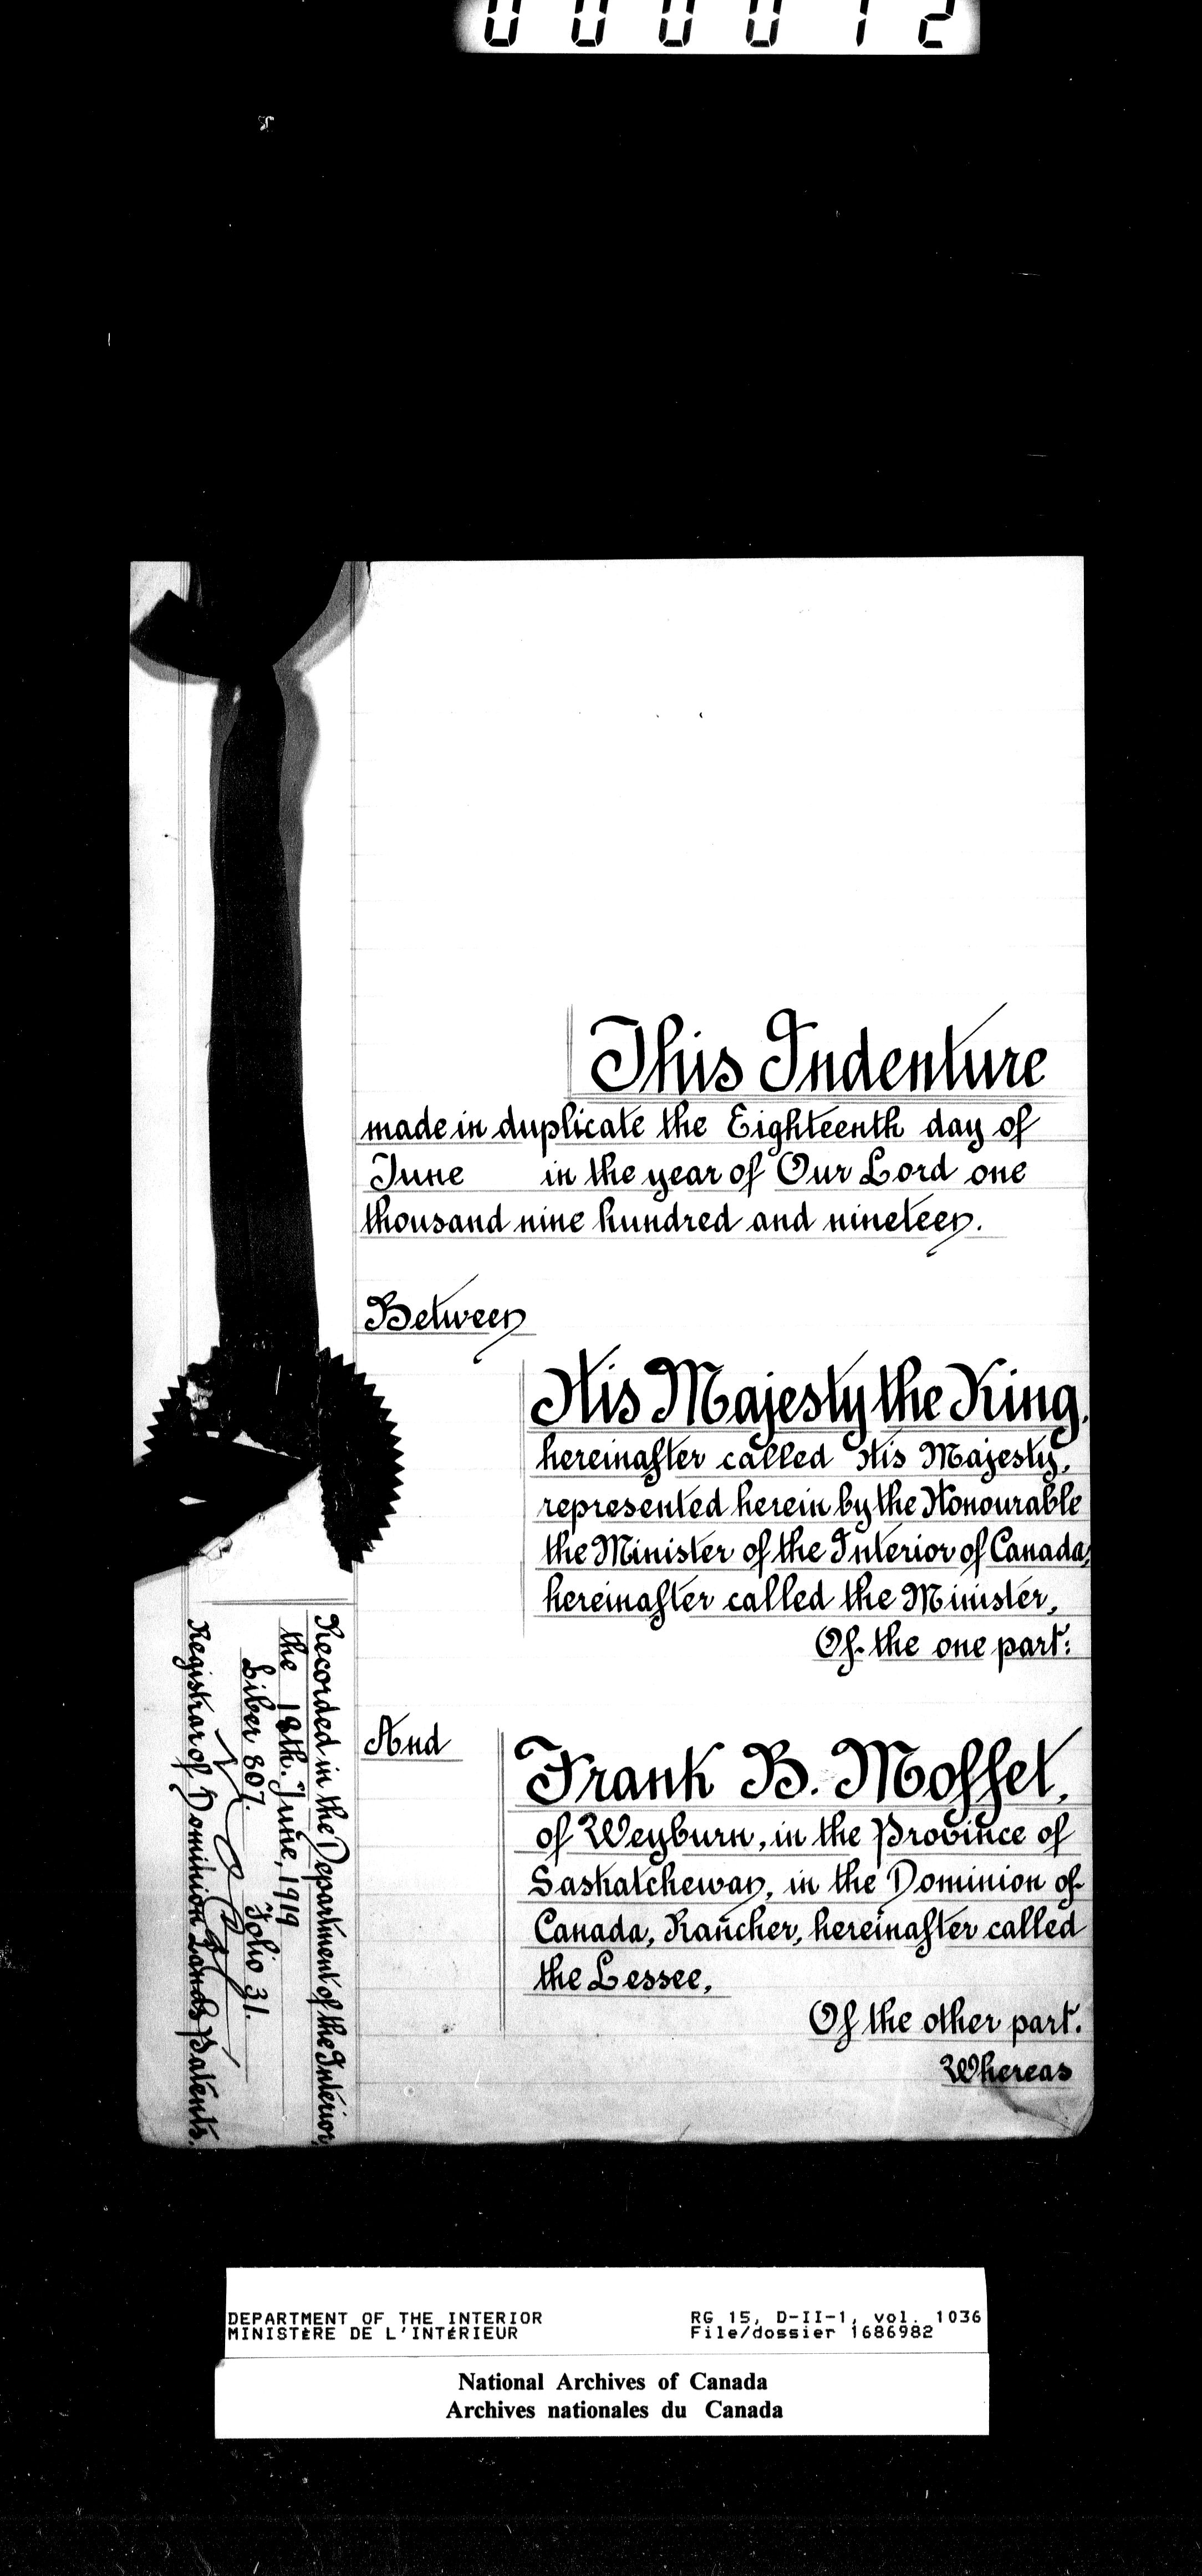 000012
This Indenture
made in duplicate the Eighteenth day of
June in the year of Our Lord one
thousand nine hundred and nineteen.
Between
His Majesty the King,
hereinafter called His Majesty,
represented herein by the Honourable
the Minister of the Interior of Canada,
hereinafter called the Minister,
Of the one part:
And
Frank B. Moffet,
of Weyburn, in the Province of
Saskatchewan, in the Dominion of
Canada, Rancher, hereinafter called
the Lessee,
Of the other part.
Whereas
Recorded in the Department of the Interior,
the 18th. June, 1919
Liber 307. Folio 31.
Registrar of Dominion Lands Patents.
DEPARTMENT OF THE INTERIOR
MINISTÈRE DE L'INTÉRIEUR
RG 15, D-II-1, vol. 1036
File/dossier 1686982
National Archives of Canada
Archives nationales du Canada